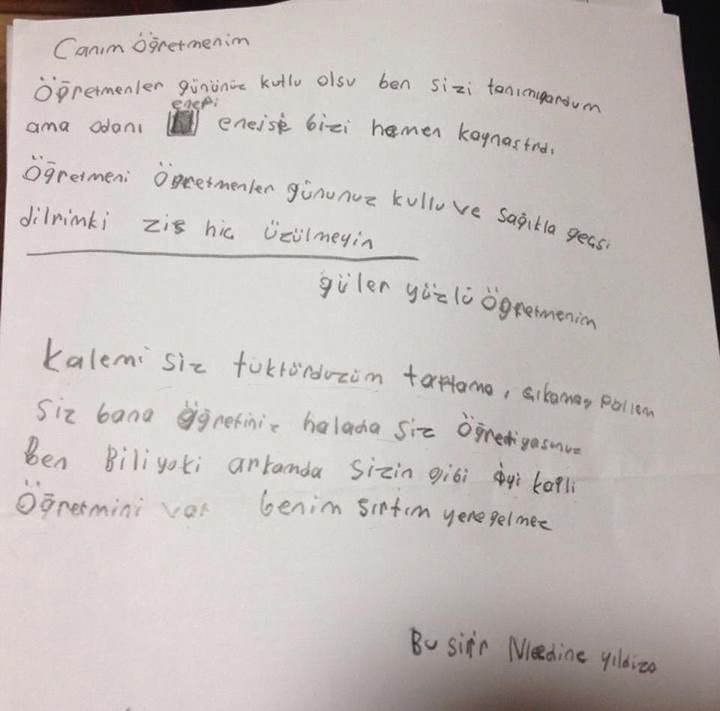 Canım Öğretmenim
Öğretmenler gününüz kutlu olsu ben sizi tanımıyardum
enepi
ama odanı enejisi bizi hemen kaynastrdı
Öğretmeni Öğretmenler gününuz kullu ve sağıkla geçsi
dilrimki zis hic üzülmeyin
güler yüzlü Öğretmenim
Kalemi siz tuktürduzüm taplama, çıkamay
Siz bana öğretiniz halada siz Öğrediyasunuz
Ben Biliyoki arkamda sizin gibi iyi kaplı
Öğretmini var benim sırtım yere gelmez
Bu siir Nledine yıldıza